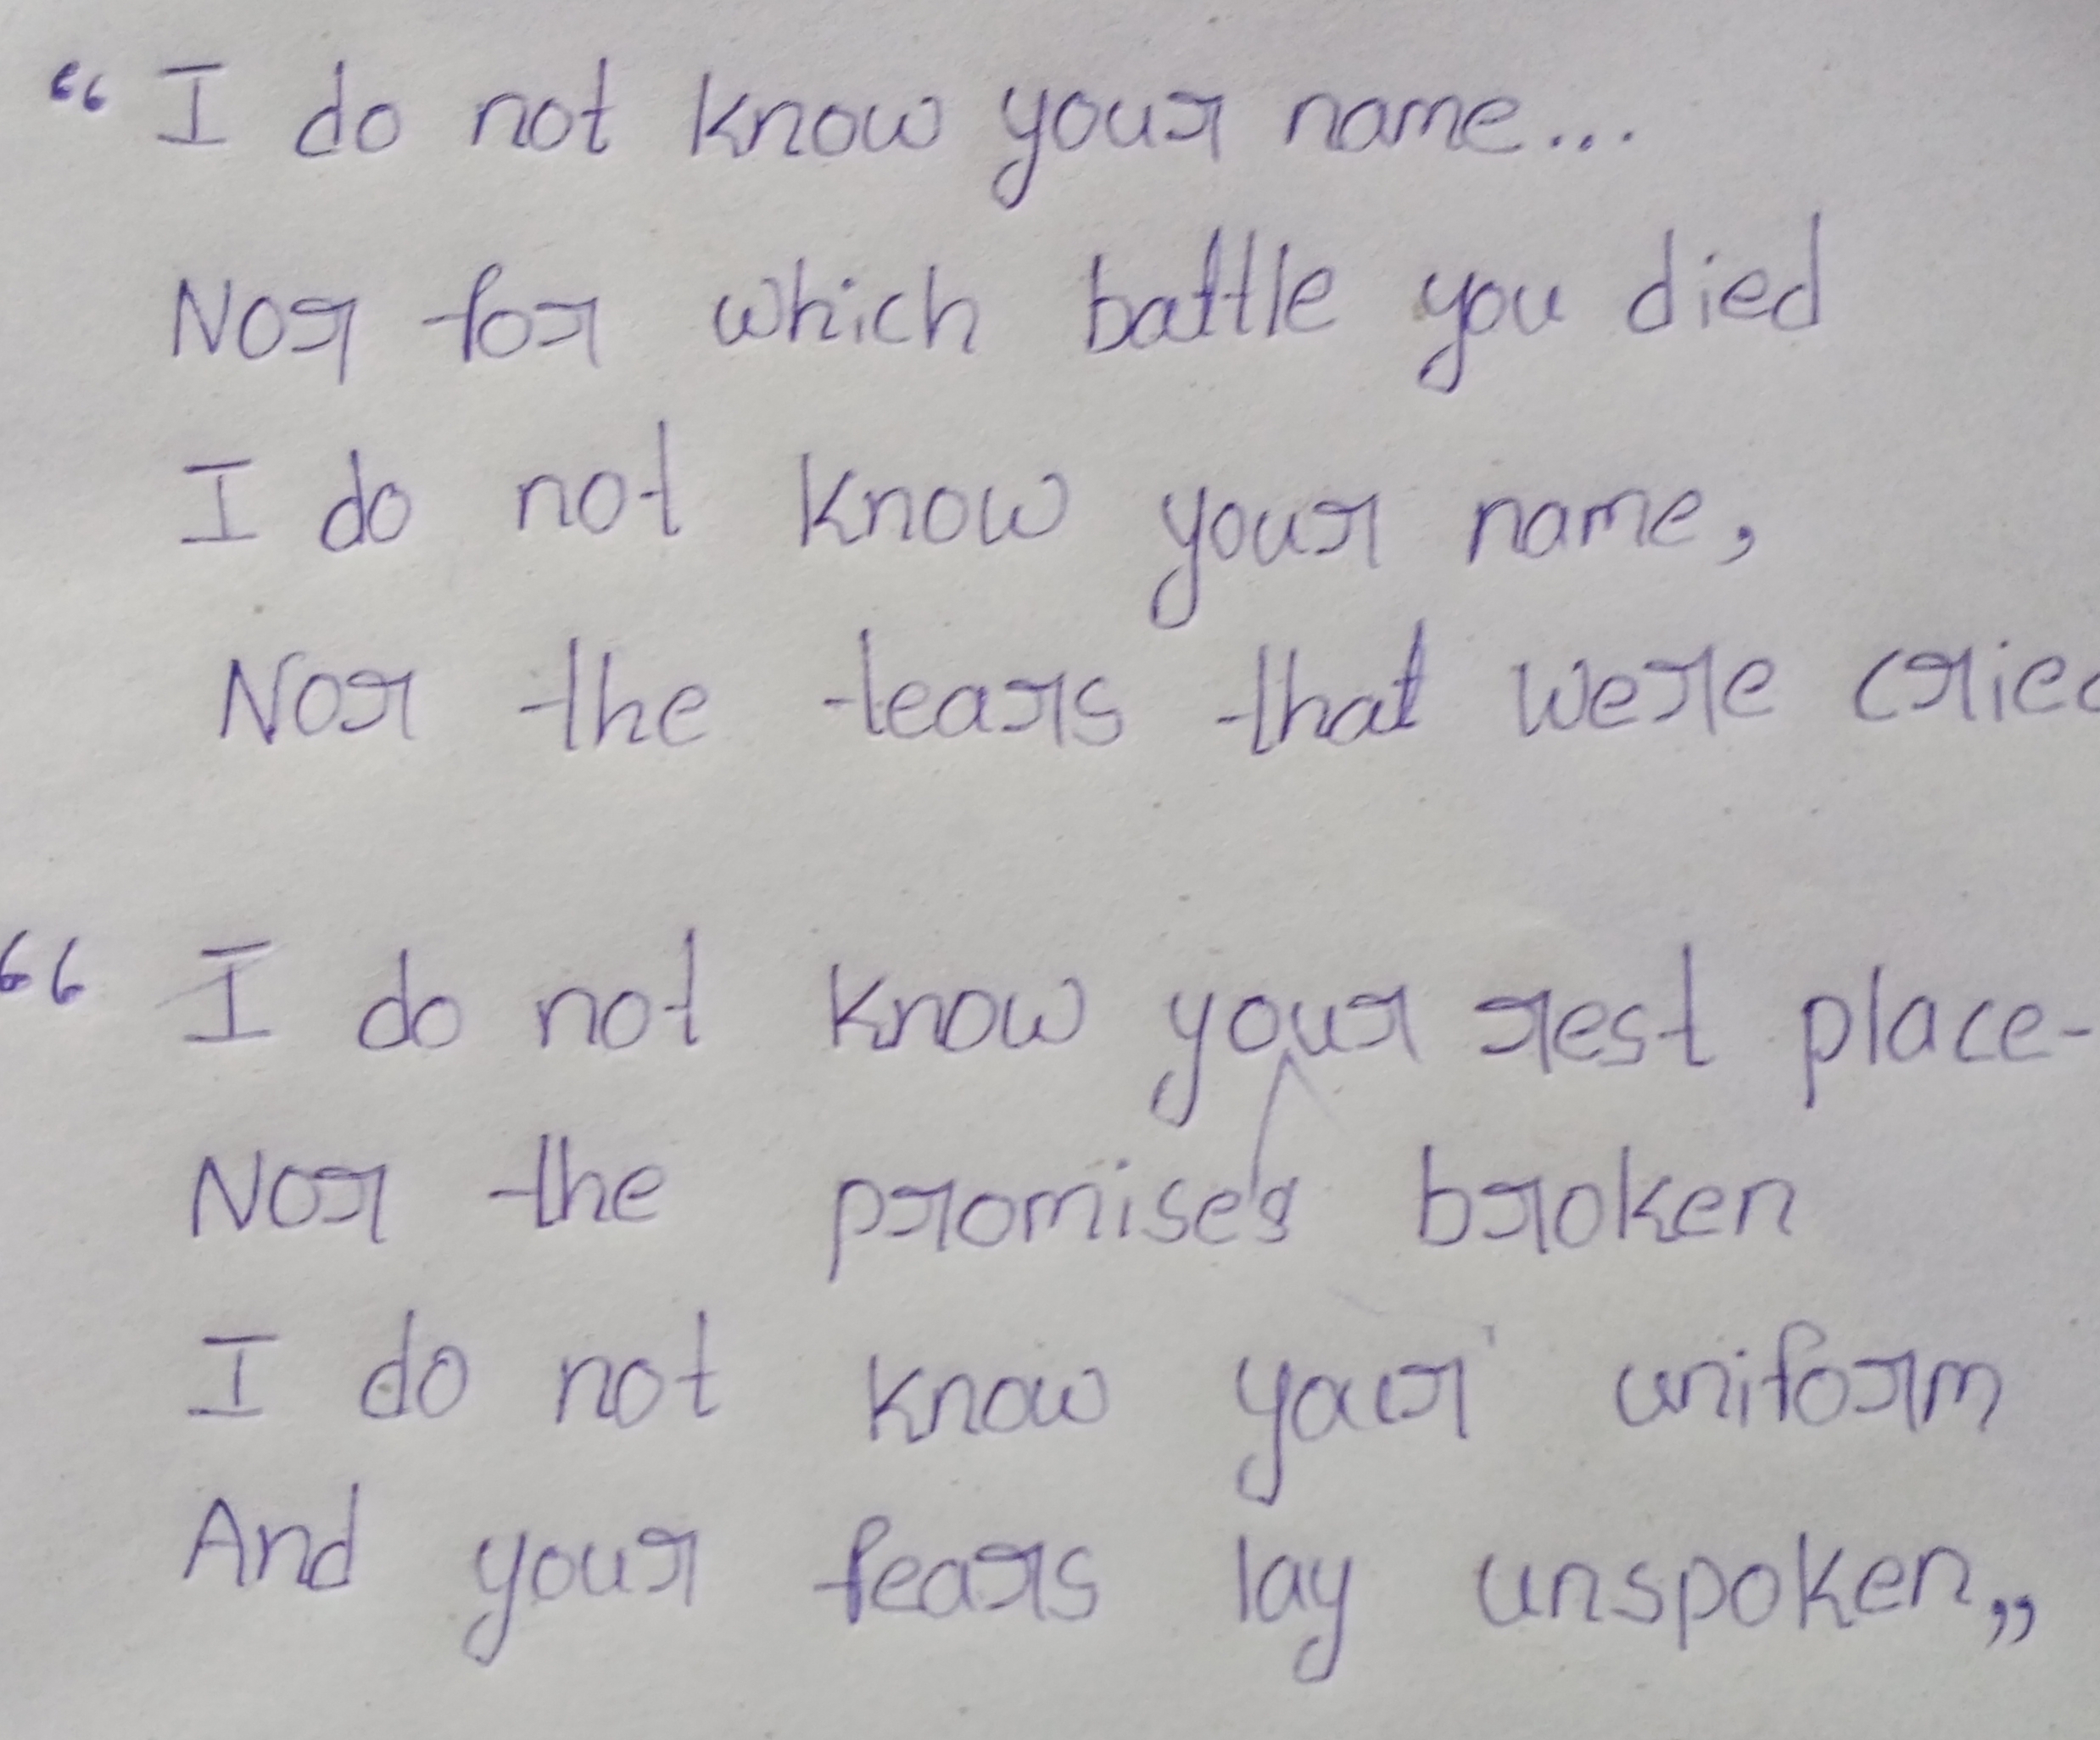 “ I do not know your name...
Nor for which battle you died
I do not know your name,
Nor the tears that were cried
“ I do not know your rest place-
Nor the promises broken
I do not know your uniform
And your fears lay unspoken„